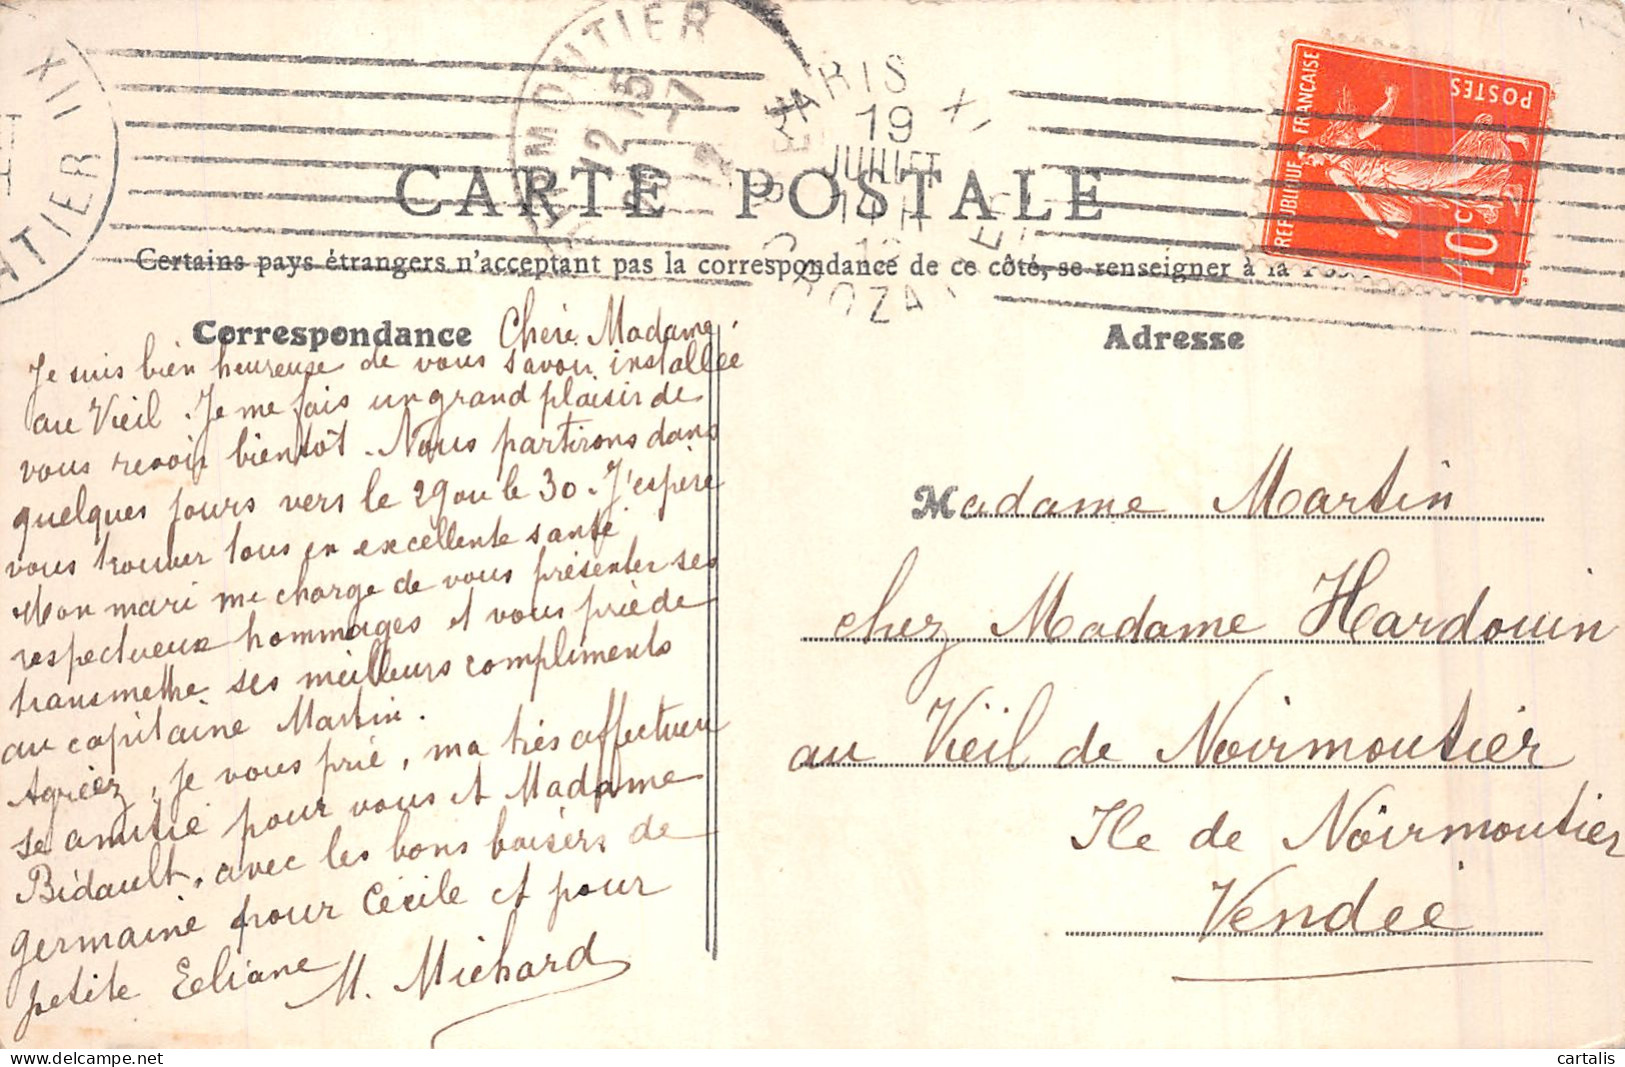 NOIRMOUTIER
12 15
PARIS XII
19
JUILLET
CROZATIER
XII
POSTES
REPUBLIQUE FRANCAISE
10 c
CARTE POSTALE
Certains pays étrangers n'acceptant pas la correspondance de ce côté, se renseigner à la
Correspondance
Chère Madame,
Je suis bien heureuse de vous savoir installée
au Vieil. Je me fais un grand plaisir de
vous revoir bientôt. Nous partirons dans
quelques jours vers le 29 ou le 30. J'espère
vous trouver tous en excellente santé
Mon mari me charge de vous présenter ses
respectueux hommages et vous prie de
transmettre ses meilleurs compliments
au capitaine Martin.
Agréez, je vous prie, ma très affectueu
se amitié pour vous et Madame
Bidault, avec les bons baisers de
germaine pour Cécile et pour
petite Eeliane
M. Michard
Adresse
Madame Martin
chez Madame Hardouin
au Vieil de Noirmoutier
Ile de Noirmoutier
Vendée
delcampe.net
cartalis